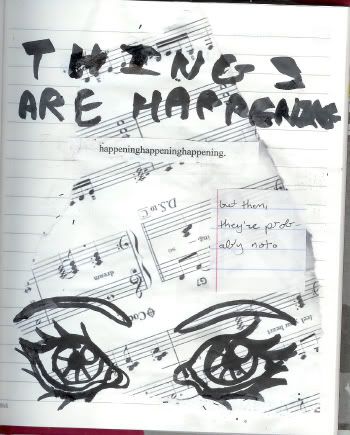 THINGS
ARE HAPPENING
happeninghappeninghappening.
D.S. to
but then,
they're prob-
ably not.
so
G7
dream